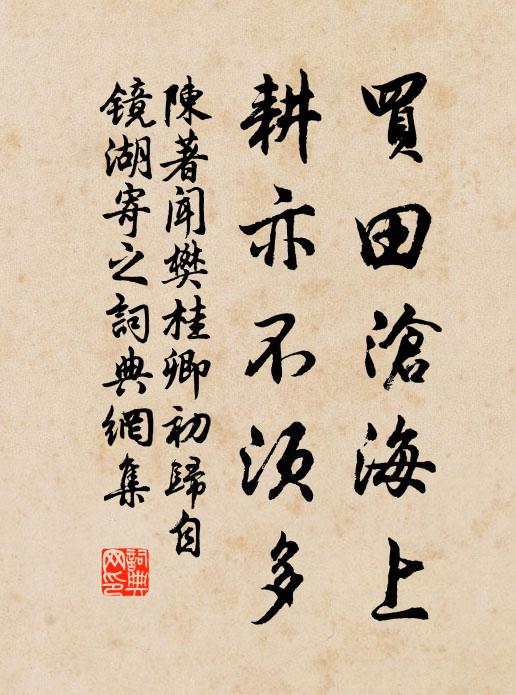 買田滄海上
耕亦不須多
陳著聞樊桂卿初歸自
鏡湖寄之詞典網集
詞典
网印